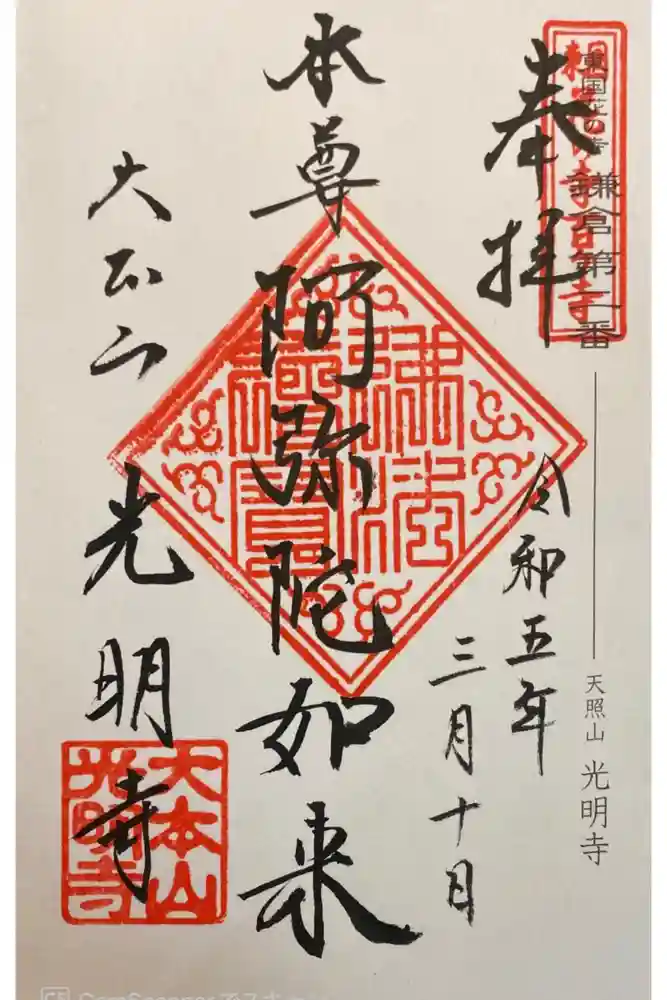 東国花の寺
鎌倉第二番
天照山 光明寺
奉拝
令和五年
三月十日
本尊 阿弥陀如来
大本山 光明寺
佛法僧寳
大本山
光明寺
CamScanner